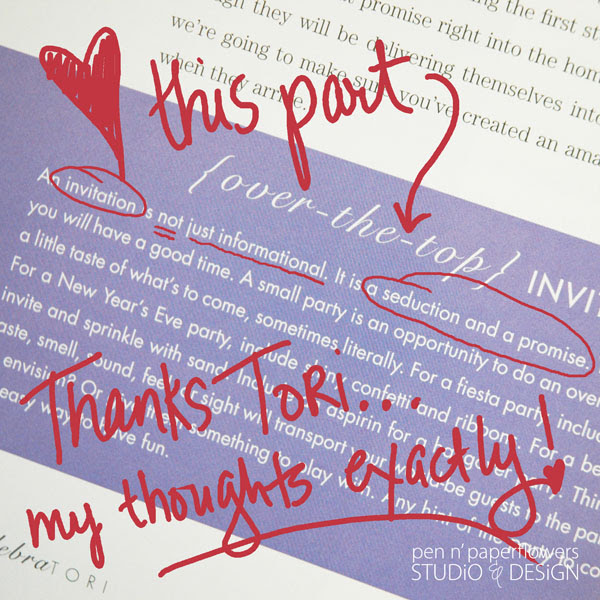 ng the first st
gh they will be delivering themselves into
at promise right into the hom
we're going to make sure you've created an ama
when they arrive.
this part
{over-the-top} INVIT
An invitation is not just informational. It is a seduction and a promise.
you will have a good time. A small party is an opportunity to do an over
a little taste of what's to come, sometimes literally. For a fiesta party, includ
For a New Year's Eve party, include confetti and ribbons. For a be
invite and sprinkle with sand. Include aspirin for a Thin
aste, smell, sound, feel sight will transport your guests to the pa
envision? Or something to play with. Any hint of the to co
easy way to have fun.
Thanks Tori...
my thoughts exactly!
lebraTORI
pen n' paperflowers
STUDiO & DESiGN